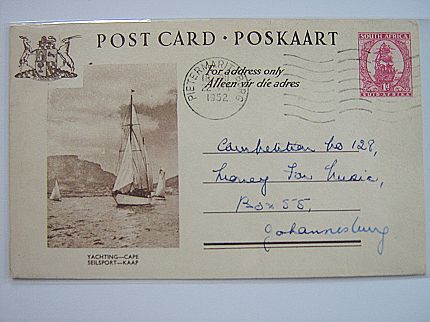 POST CARD · POSKAART
For address only
Alleen vir die adres
SOUTH AFRICA
1d
SUID-AFRIKA
PIETERMARITZBURG
1952
Competition No 129,
Money For Music,
Box 55,
Johannesburg
YACHTING—CAPE
SEILSPORT—KAAP